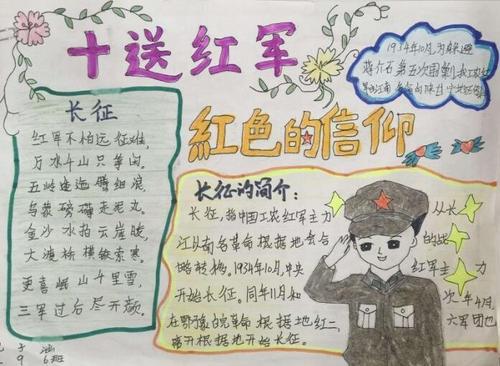 十送红军
1934年10月,为躲避
蒋介石第五次围剿,
长征
红军不怕远征难,
万水千山只等闲。
五岭逶迤腾细浪,
乌蒙磅礴走泥丸。
金沙水拍云崖暖,
大渡桥横铁索寒。
更喜岷山千里雪,
三军过后尽开颜。
紅色的信仰
长征的简介:
长征,指中国工农红军主力 从长
江从南各革命根据地会合 的战
略转移,1934年10月,中央 红军主力
开始长征,同年11月和 次年4月
在鄂豫皖革命根据地红二 六军团也
离开根据地开始长征。
6班